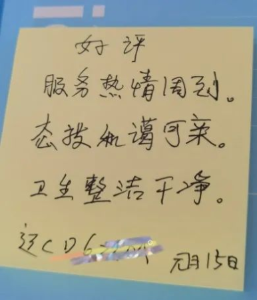 好评
服务热情周到。
态技和蔼可亲。
卫生整洁干净。
元月15日